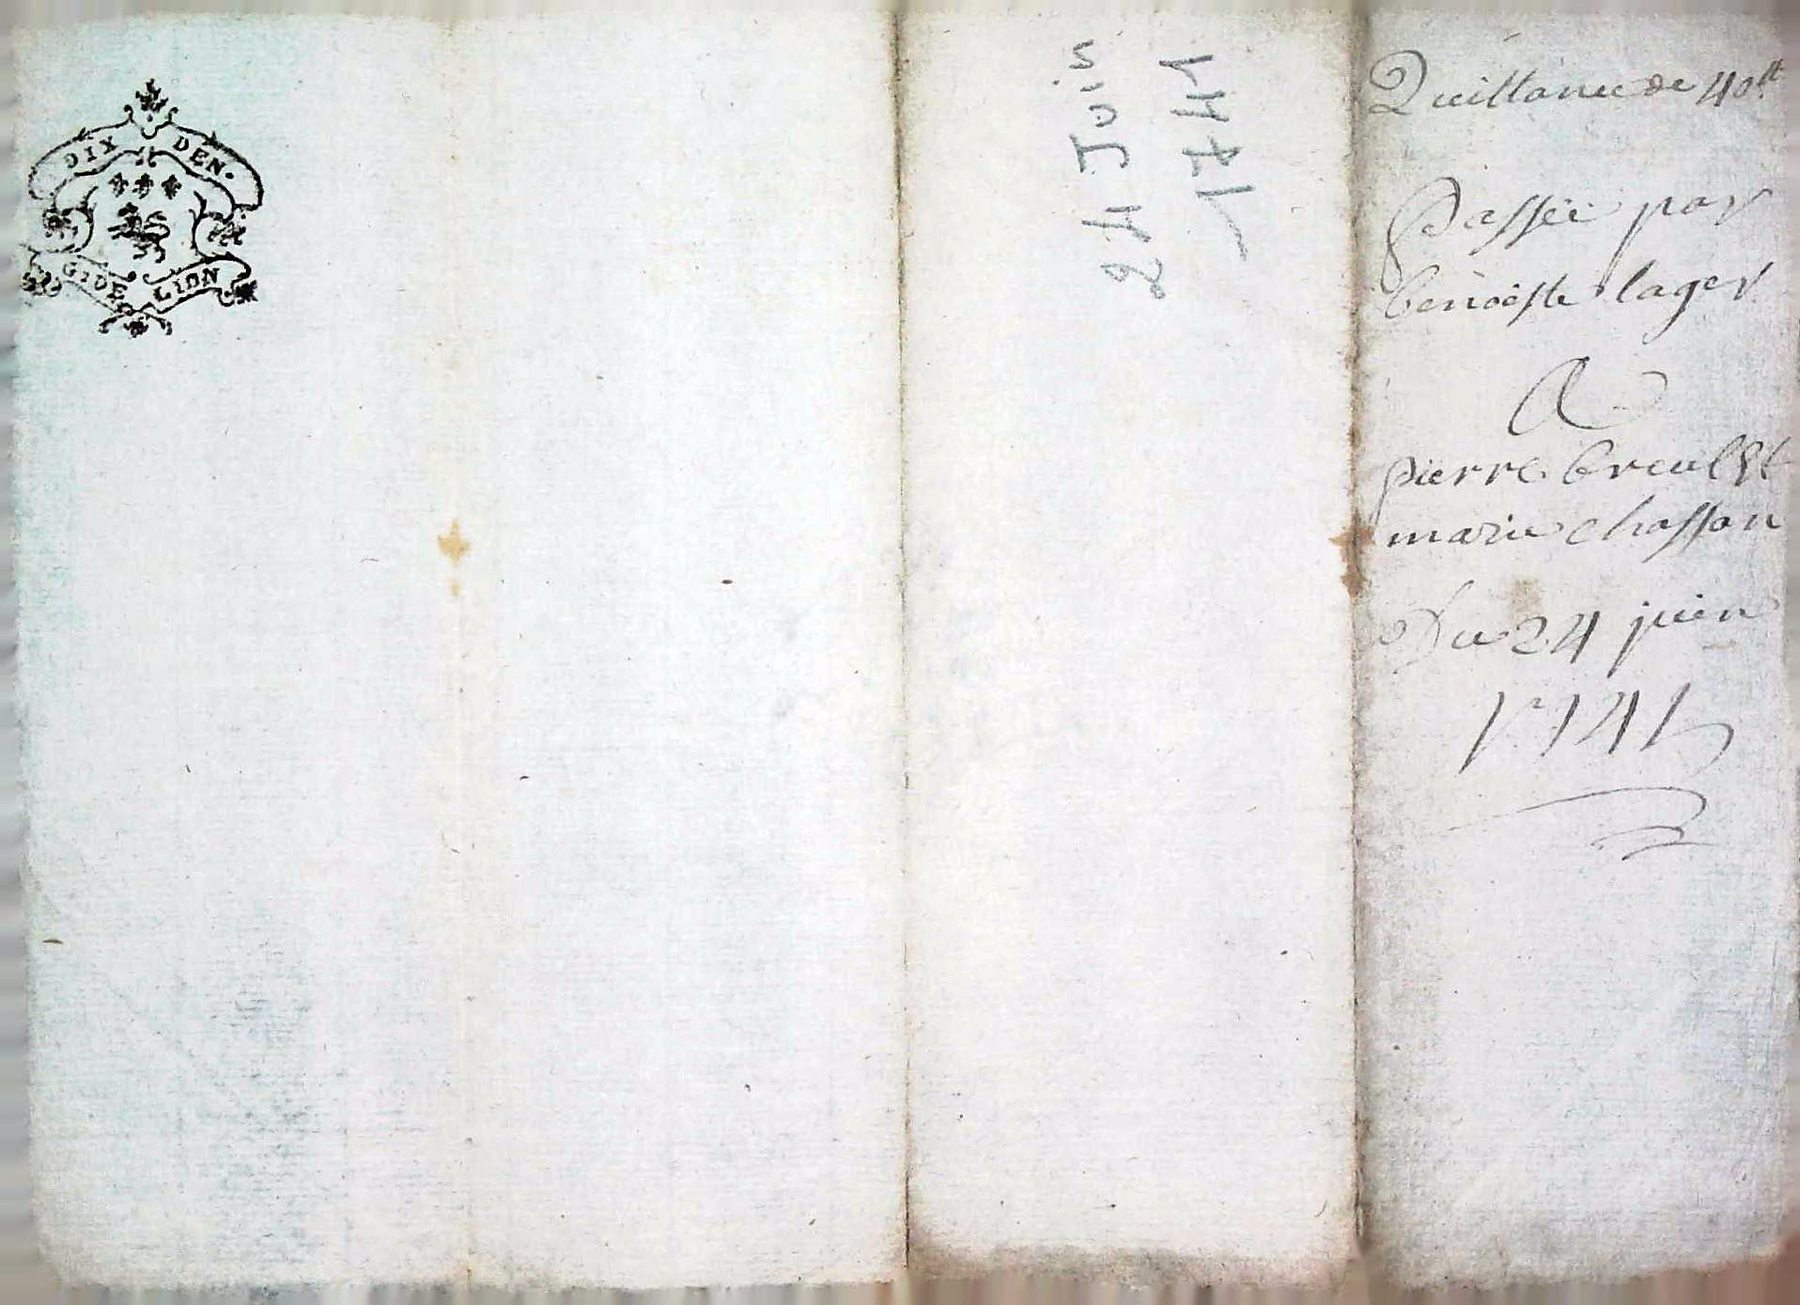 DIX DEN.
G. DE LION
24 Juin
1741
Quittance de 40lt
passée par
benoiste lager
A
pierre breul Et
marie chassan
Du 24 juin
1741